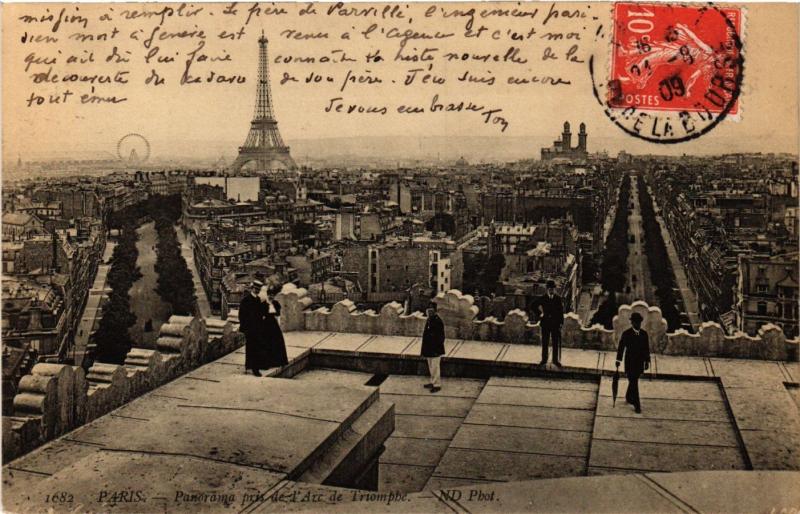 mission à remplir. Le père de Parville, l'ingénieur pari-
sien mort à Genève est venu à l'agence et c'est moi !
qui ait dû lui faire connaître la triste nouvelle de la
découverte du cadavre de son père. J'en suis encore
tout ému Je vous embrasse
Tony
10c
POSTES
09
DE LA BOURSE
1682 PARIS. — Panorama pris de l'Arc de Triomphe. — ND Phot.